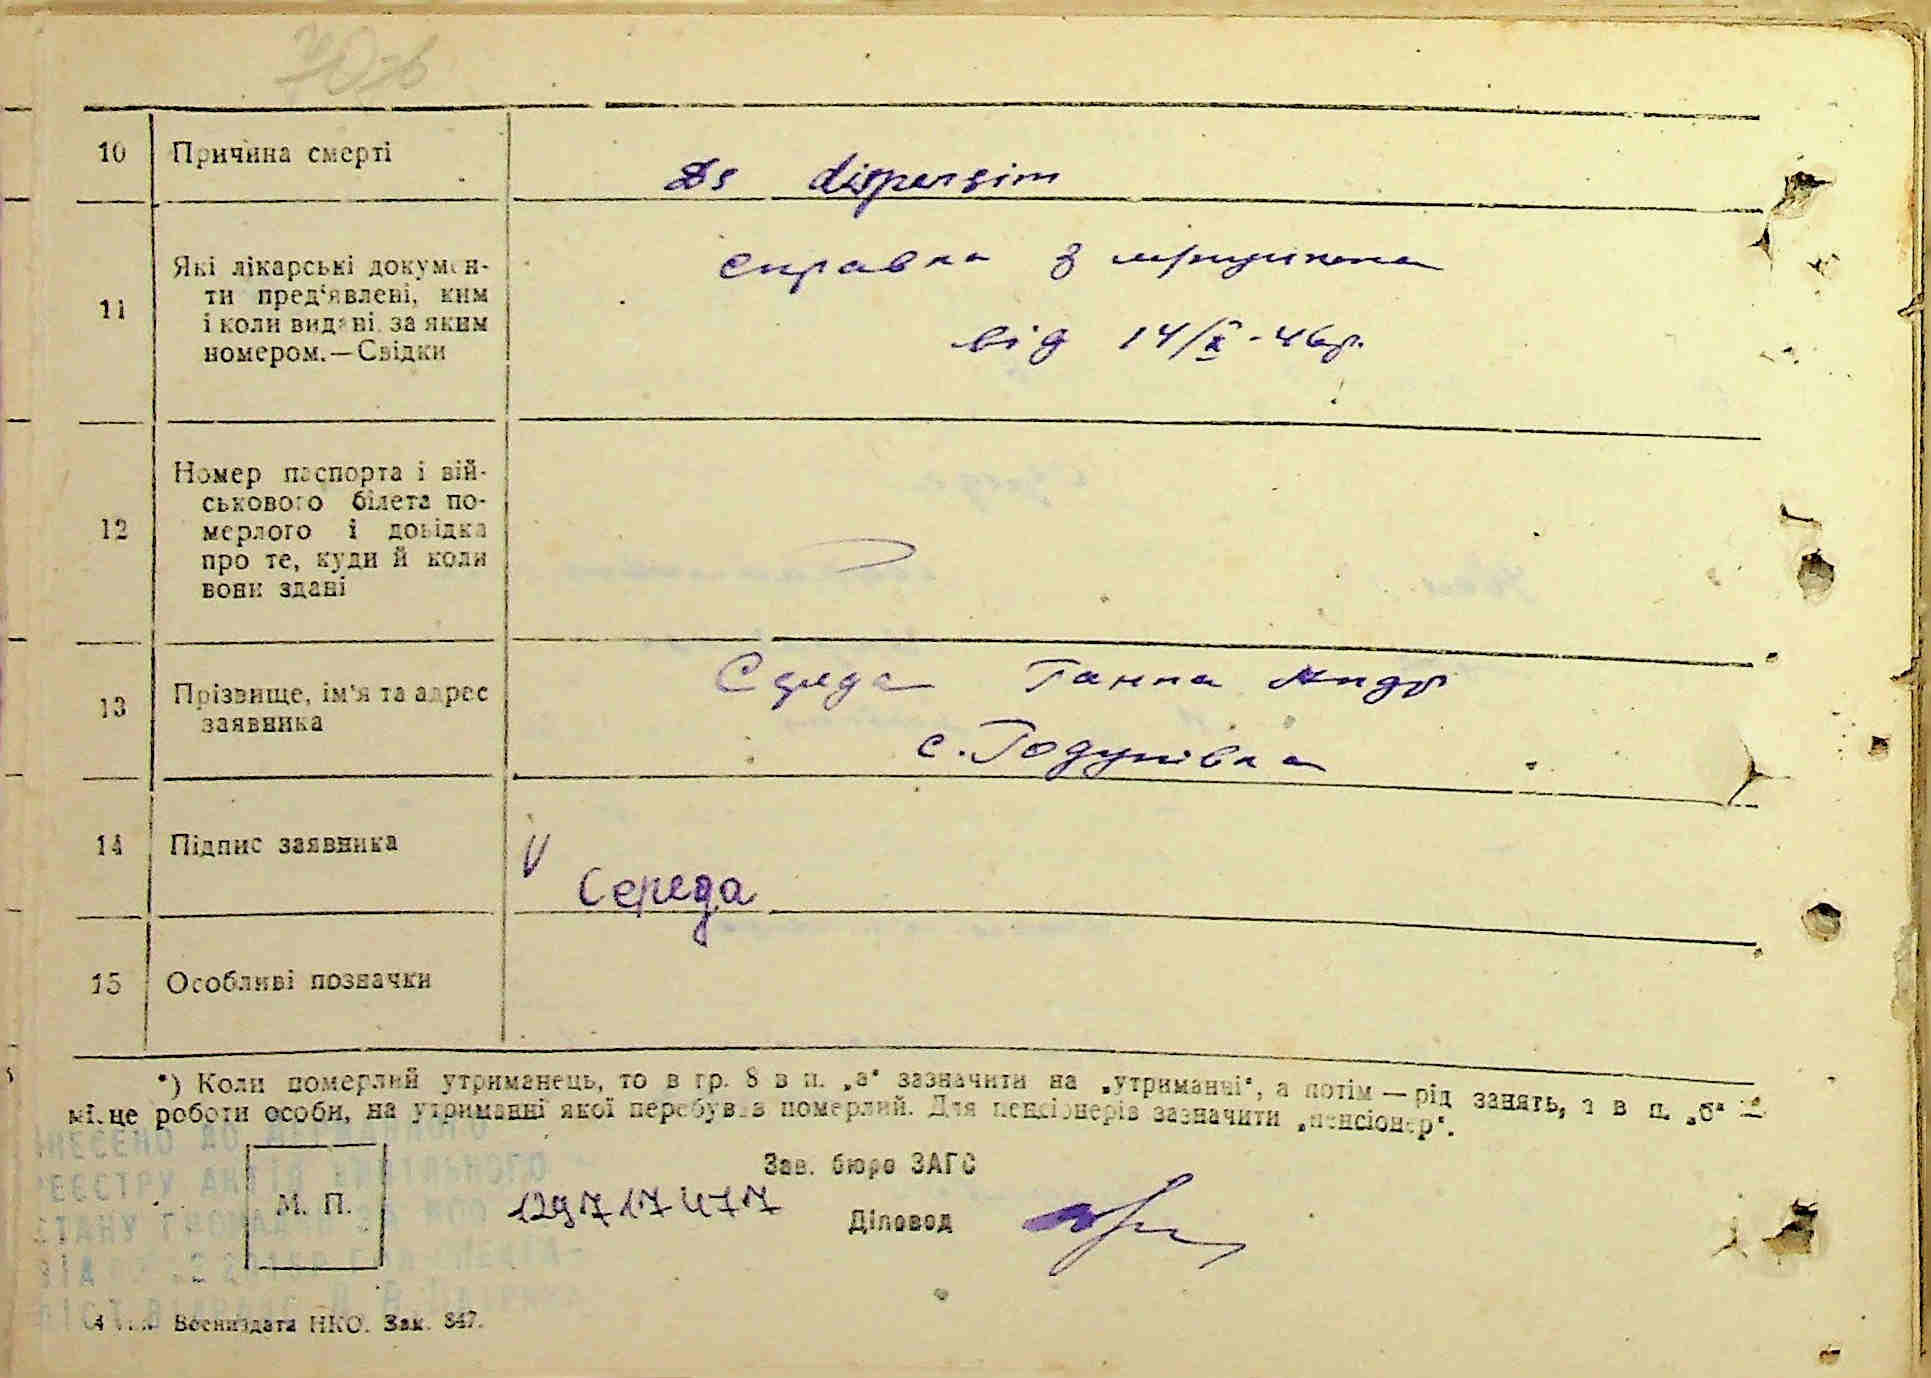 10 Причина смерті
Ds dispersim
11 Які лікарські докумен-
ти пред'явлені, ким
і коли видані за яким
номером.—Свідки
справка з
від 14/X-46р.
12 Номер паспорта і вій-
ськового білета по-
мерлого і довідка
про те, куди й коли
вони здані
13 Прізвище, ім'я та адрес
заявника
Середа Ганна Андр
с. Годунівка
14 Підпис заявника
V Середа
15 Особливі позначки
*) Коли померлий утриманець, то в гр. 8 в п. „а“ зазначити на „утриманні“, а потім — рід занять, а в п. „б“ —
місце роботи особи, на утриманні якої перебував померлий. Для пенсіонерів зазначити „пенсіонер“.
Зав. бюро ЗАГС
М. П.
129717477
Діловод
ДО ДЕРЖАВНОГО
РЕЄСТРУ АКТІВ ЦИВІЛЬНОГО
СТАНУ ГРОМАДЯН ЗА №00
ВІД
Воениздата НКО. Зак. 847.